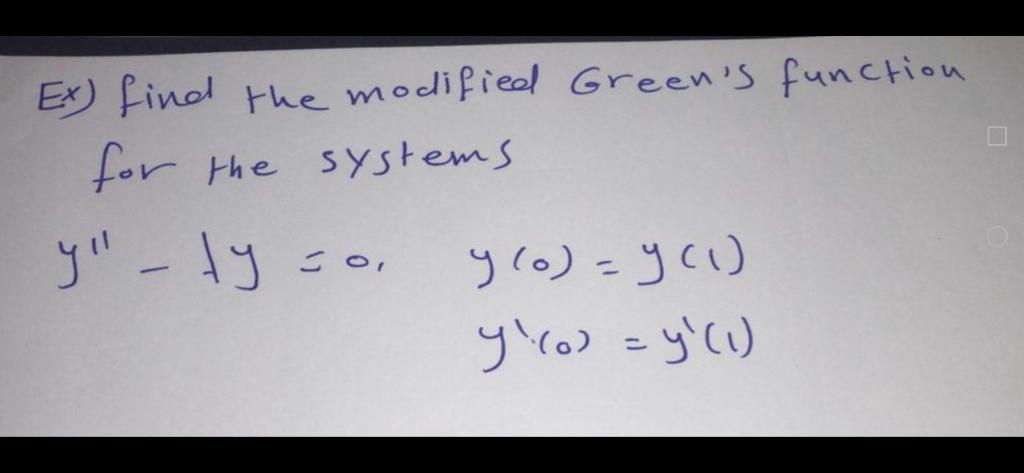 Ex) find the modified Green's function
for the systems
y'' - λy = 0, y(0) = y(1)
y'(0) = y'(1)